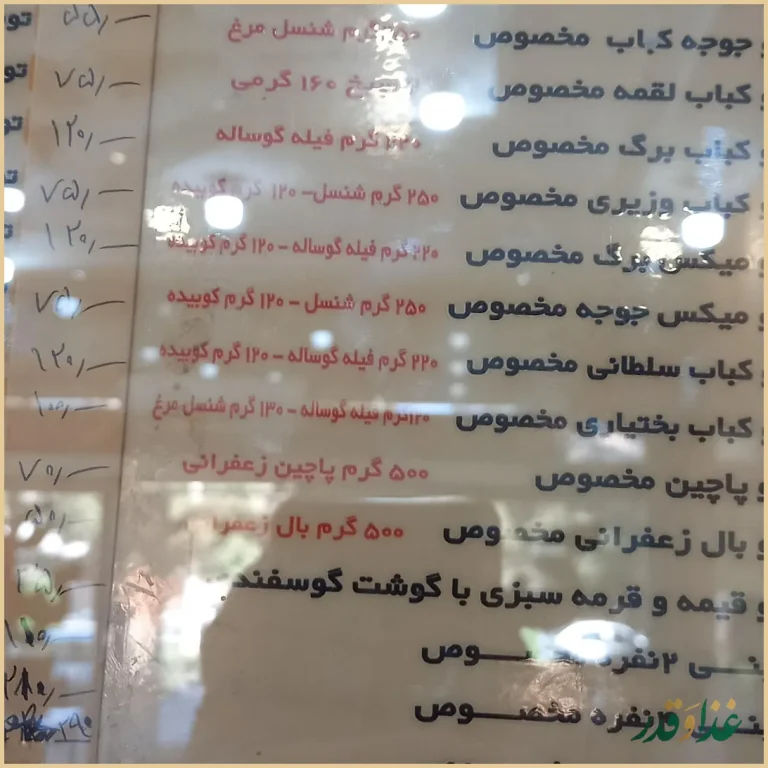 و جوجه کباب مخصوص گرم شنسل مرغ ۵۵/—
و کباب لقمه مخصوص ۱۶۰ گرمی ۷۵/—
و کباب برگ مخصوص گرم فیله گوساله ۱۲۰/—
و کباب وزیری مخصوص ۲۵۰ گرم شنسل – ۱۲۰ گرم کوبیده ۷۵/—
و میکس برگ مخصوص ۲۲۰ گرم فیله گوساله – ۱۲۰ گرم کوبیده ۱۲۰/—
و میکس جوجه مخصوص ۲۵۰ گرم شنسل – ۱۲۰ گرم کوبیده ۷۵/—
و کباب سلطانی مخصوص ۲۲۰ گرم فیله گوساله – ۱۲۰ گرم کوبیده ۱۲۰/—
و کباب بختیاری مخصوص ۱۲۰گرم فیله گوساله – ۱۳۰ گرم شنسل مرغ ۱۰۰/—
و پاچین مخصوص ۵۰۰ گرم پاچین زعفرانی ۷۰/—
و بال زعفرانی مخصوص ۵۰۰ گرم بال
و قیمه و قرمه سبزی با گوشت گوسفند
۲نفره مخصوص
نفره مخصوص
غذا و قدر